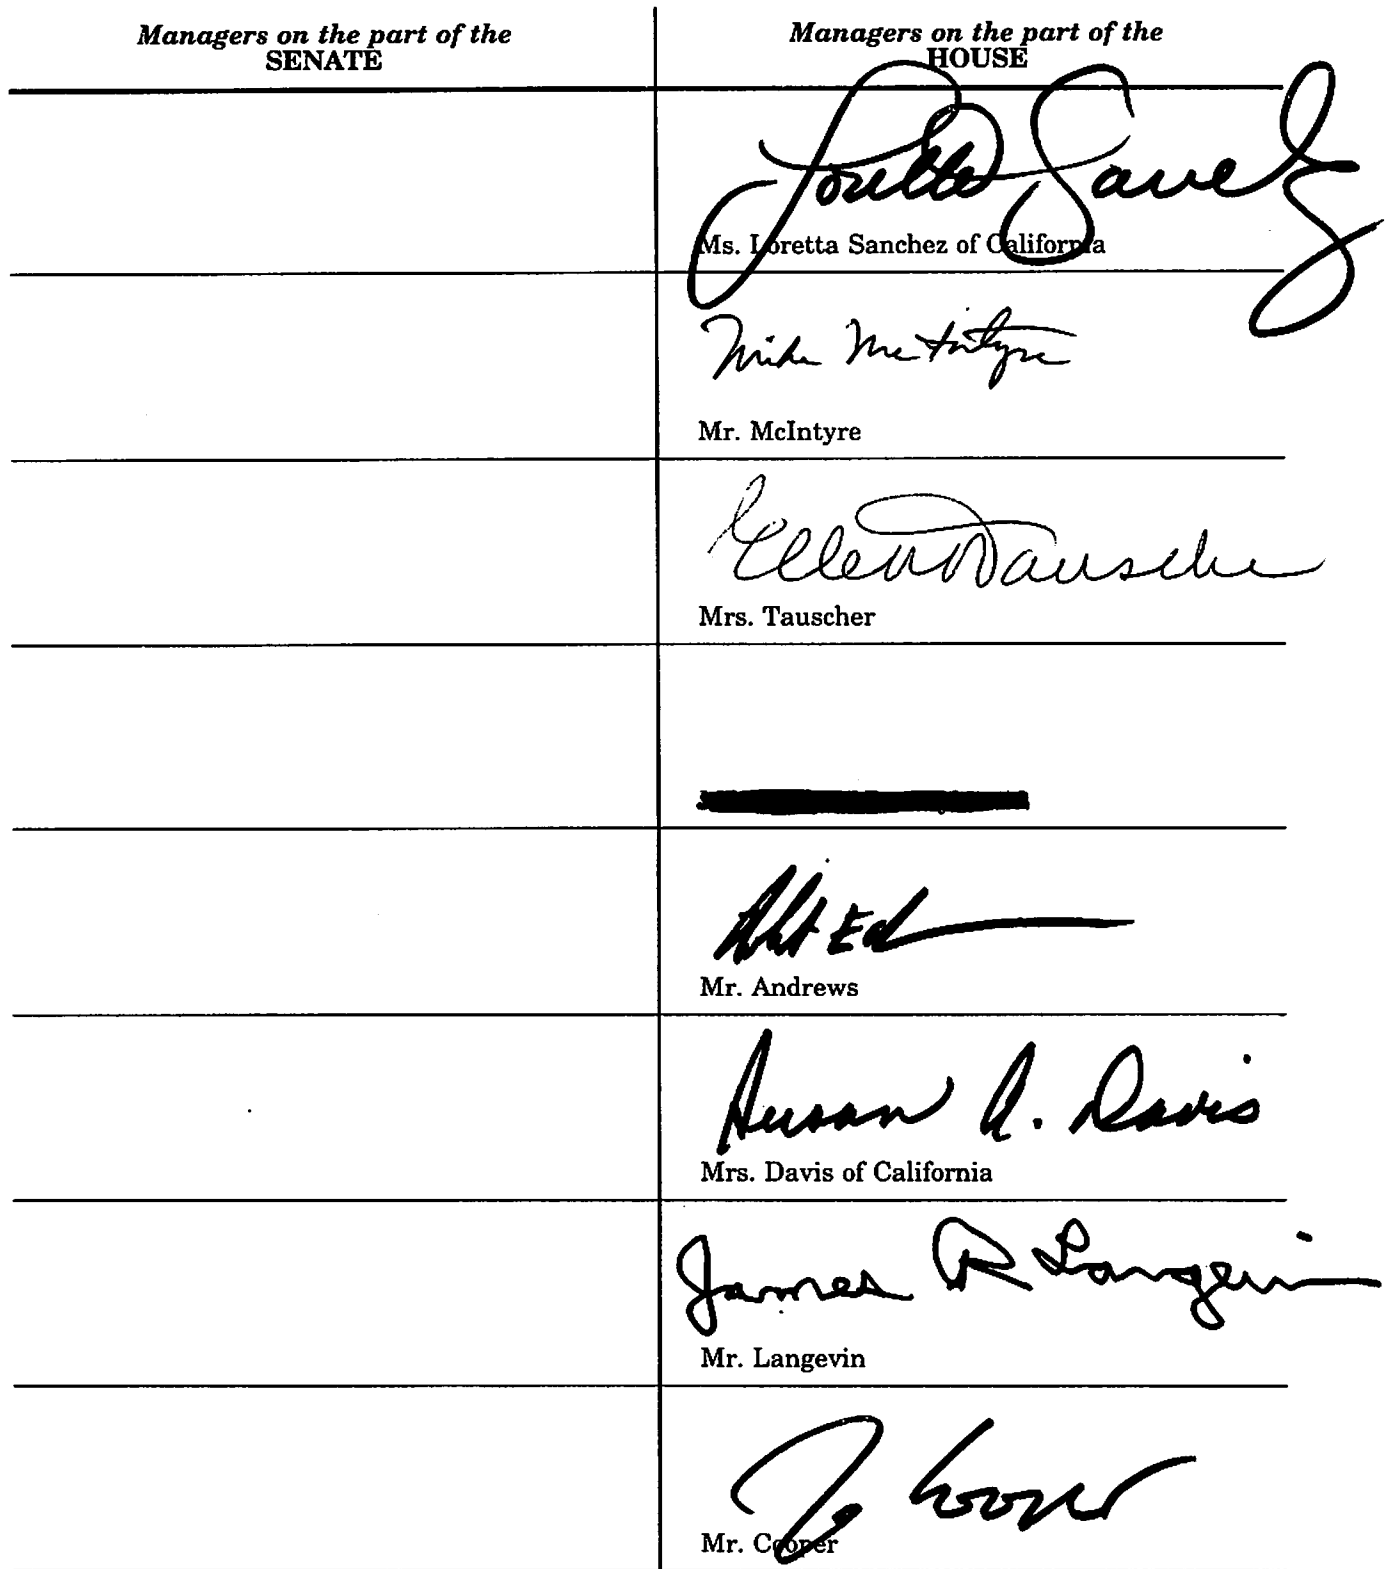 Managers on the part of the
SENATE
Managers on the part of the
HOUSE
Loretta Sanchez
Ms. Loretta Sanchez of California
Mike McIntyre
Mr. McIntyre
Ellen Tauscher
Mrs. Tauscher
Mr. Andrews
Susan A. Davis
Mrs. Davis of California
James R Langevin
Mr. Langevin
Cooper
Mr. Cooper